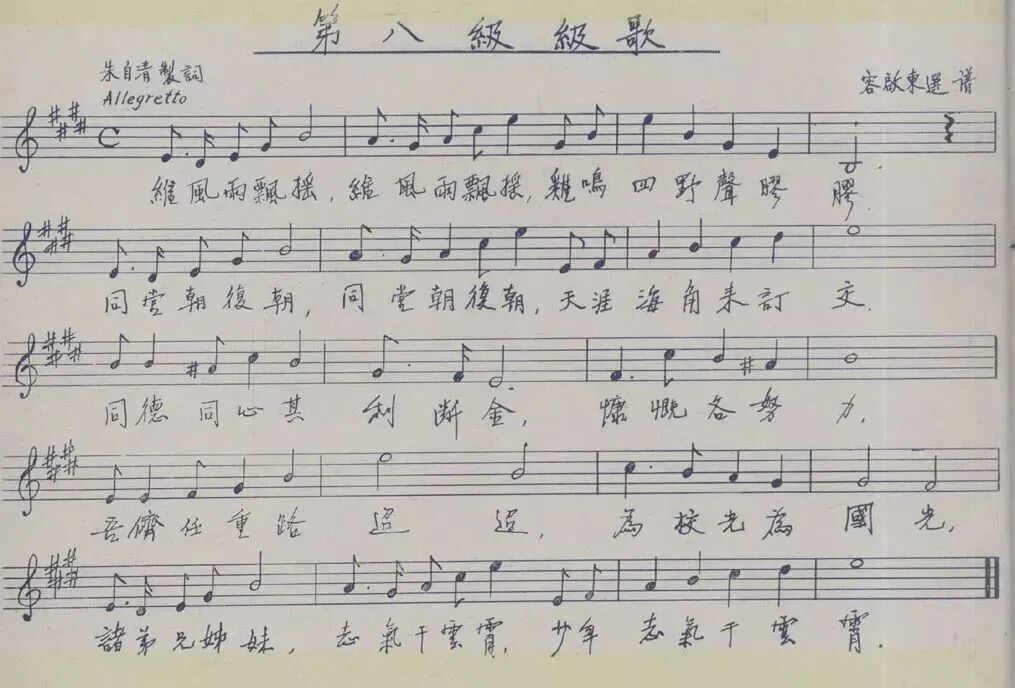 第八級級歌
朱自清製詞
Allegretto
容啟東選谱
維風雨飄摇，維風雨飄摇，雞鳴四野聲膠膠.
同堂朝復朝，同堂朝復朝，天涯海角来訂交.
同德同心其利斷金，慷慨各努力.
吾儕任重路迢迢，為校光為國光，
諸弟兄姊妹，志氣干雲霄，少年志氣干雲霄.